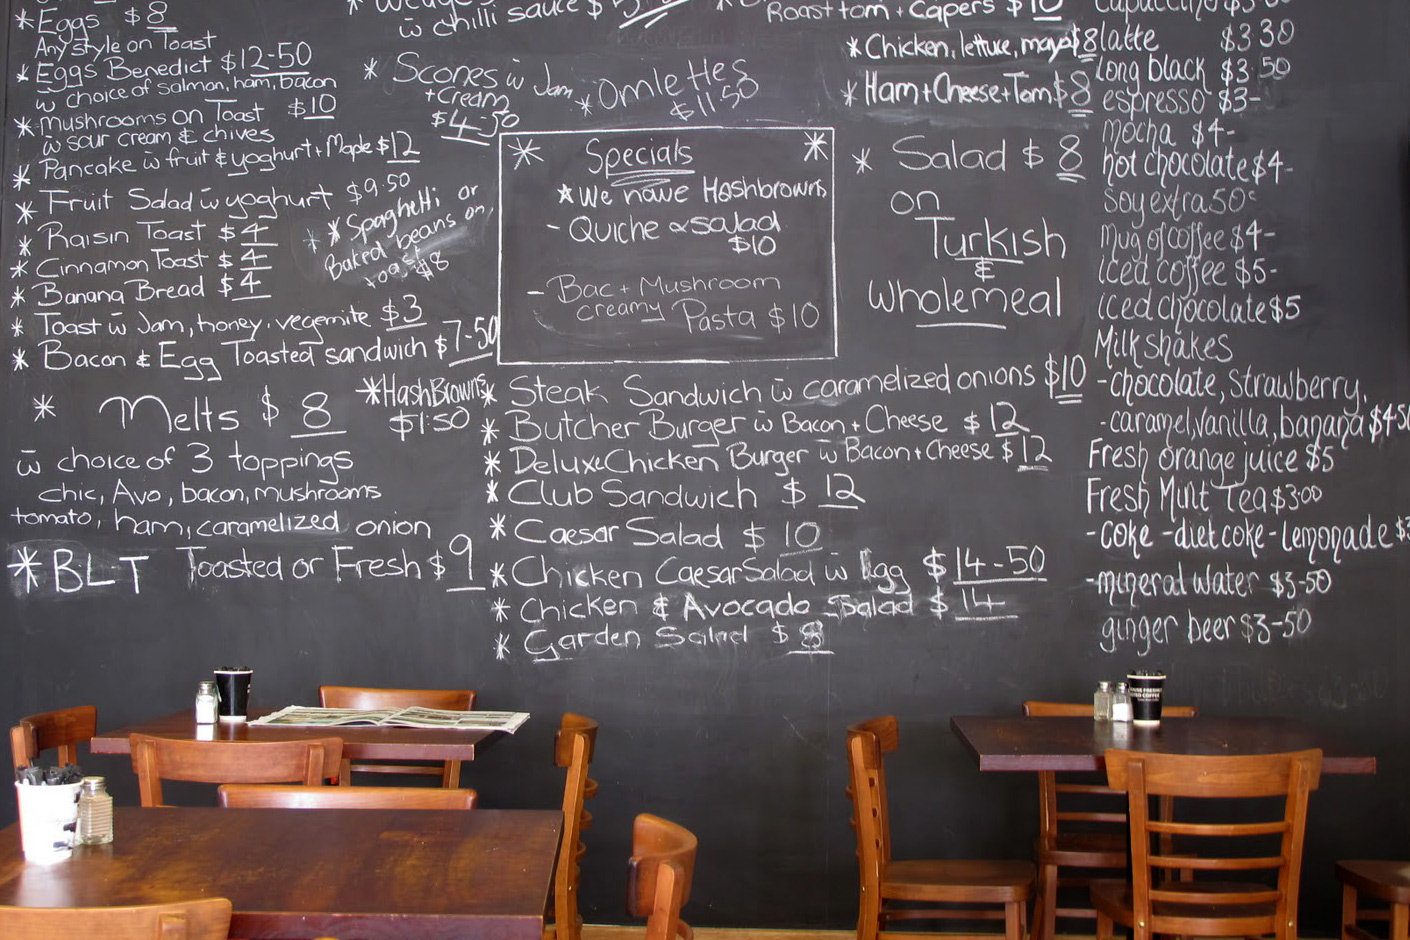 * Eggs $8
Any style on Toast
* Eggs Benedict $12-50
w̄ choice of salmon, ham, bacon
* Mushrooms on Toast $10
w̄ sour cream & chives
* Pancake w̄ fruit & yoghurt + Maple $12
* Fruit Salad w̄ yoghurt $9.50
* Raisin Toast $4
* Cinnamon Toast $4
* Banana Bread $4
* Toast w̄ Jam, honey, vegemite $3
* Bacon & Egg Toasted sandwich $7-50
* Spaghetti or
Baked beans on
toast $8
* HashBrowns
$1.50
* Melts $8
w̄ choice of 3 toppings
chic, Avo, bacon, mushrooms
tomato, ham, caramelized onion
* BLT Toasted or Fresh $9
w̄ chilli sauce $
* Scones w̄ Jam
+ Cream
$4-50
* Omlettes
$11.50
* Specials *
* We have Hashbrowns
- Quiche & salad
$10
- Bac + Mushroom
creamy Pasta $10
* Steak Sandwich w̄ caramelized onions $10
* Butcher Burger w̄ Bacon + Cheese $12
* Deluxe Chicken Burger w̄ Bacon + Cheese $12
* Club Sandwich $12
* Caesar Salad $10
* Chicken Caesar Salad w̄ Egg $14-50
* Chicken & Avocado Salad $14
* Garden Salad $8
Roast tom + Capers $10
* Chicken, lettuce, mayo $8
* Ham + Cheese + Tom $8
* Salad $8
on
Turkish
&
Wholemeal
Capuccino
latte $3 30
long black $3.50
espresso $3-
Mocha $4-
hot chocolate $4-
Soy extra 50c
Mug of coffee $4-
Iced coffee $5-
iced chocolate $5
Milkshakes
- chocolate, Strawberry,
- caramel, Vanilla, banana $4-50
Fresh orange juice $5
Fresh Mint Tea $3.00
- coke - diet coke - Lemonade $3
- mineral water $3-50
ginger beer $3-50